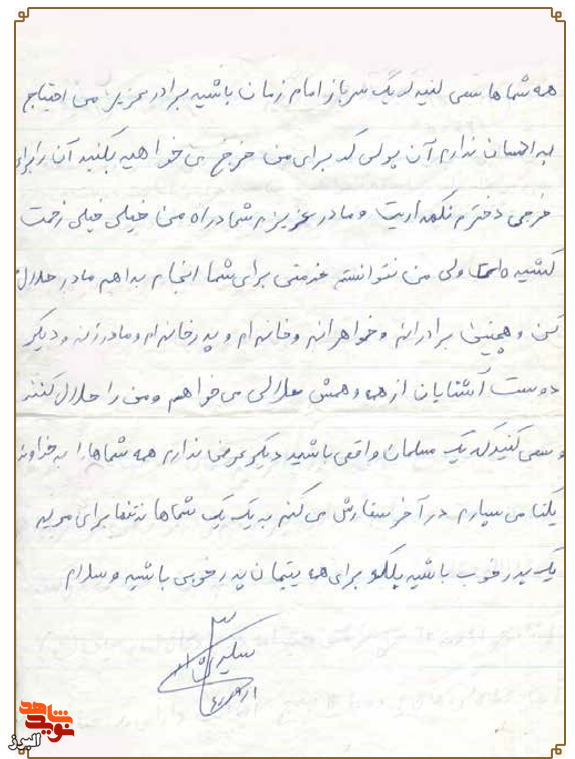 همه شماها سعی کنید که یک سرباز امام زمان باشید برادر عزیز من احتیاج
به احسان ندارم آن پولی که برای من خرج می خواهید بکنید آن را برای
خرجی دخترم نگهدارید و مادر عزیزم شما در راه من خیلی خیلی زحمت
کشیده اید ولی من نتوانستم خدمتی برای شما انجام بدهم مادر حلالم
کن و همچنین برادرانم و خواهرانم و خانه ام و پدر خانه ام و مادرزنم و دیگر
دوست آشنایان از همه و همش حلالی می خواهم و من را حلال کنند
و سعی کنید که یک مسلمان واقعی باشید دیگر عرضی ندارم همه شماها را به خداوند
یکتا می سپارم در آخر سفارش می کنم به یک یک شماها نه تنها برای مریم
یک پدر خوب باشید بلکه برای همه یتیمان پدر خوبی باشید و سلام
نوید شاهد
البرز